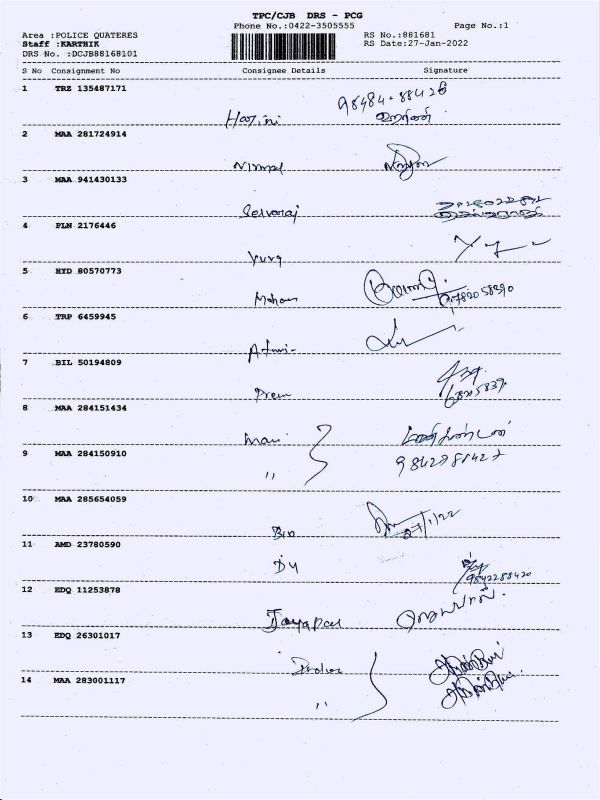 TPC/CJB DRS - PCG
Phone No.:0422-3505555
Page No.:1
Area :POLICE QUATERES
RS No.:881681
Staff :KARTHIK
RS Date:27-Jan-2022
DRS No. :DCJB88168101
S No Consignment No Consignee Details Signature
1 TRZ 135487171
Harini 98484-88426
2 MAA 281724914
Nirmal
3 MAA 941430133
Selvaraj
4 PLN 2176446
Yuva
5 HYD 80570773
Mohan
6 TRP 6459945
7 BIL 50194809
Prem
8 MAA 284151434
Mani மணிகண்டன்
9 MAA 284150910
" 9842788427
10 MAA 285654059
27/1/22
11 AMD 23780590
9842288420
12 EDQ 11253878
Jayapal ஜெயபால்
13 EDQ 26301017
14 MAA 283001117
"